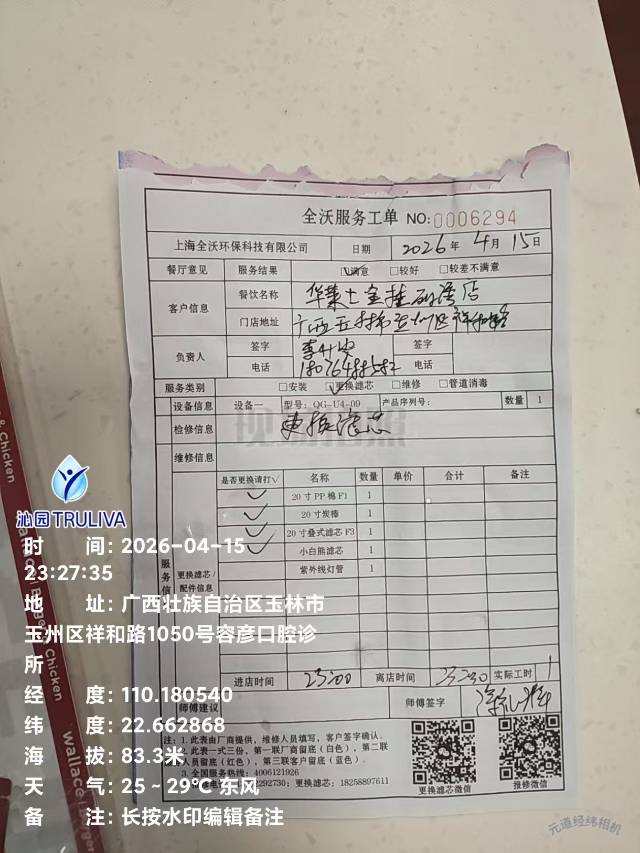 全沃服务工单 NO:0006294
上海全沃环保科技有限公司 日期 2026年4月15日
餐厅意见 服务结果 ☑满意 □较好 □较差不满意
客户信息 餐饮名称 华莱士金桂 店
门店地址 广西玉林市玉州区祥和路
负责人 签字 签字
电话 电话
服务类别 □安装 ☑更换滤芯 □维修 □管道消毒
设备信息 设备一 型号: QG-U4-09 产品序列号: 数量 1
检修信息 更换滤芯
维修信息
服务信 更换滤芯/配件信息
是否更换请打√ 名称 数量 单价 合计 备注
√ 20寸PP棉F1 1
√ 20寸炭棒 1
√ 20寸叠式滤芯F3 1
√ 小白熊滤芯 1
紫外线灯管 1
进店时间 23:00 离店时间 23:30 实际工时 1
师傅建议 师傅签字
注:1.此表由厂商提供,维修人员填写,客户签字确认。
2.此表一式三份,第一联厂商留底(白色),第二联
人员留底(红色),第三联客户留底(蓝色)。
3.全国服务热线:4006121926
292730;更换滤芯:18258897611
更换滤芯微信 报修微信
沁园TRULIVA
时间: 2026-04-15
23:27:35
地址: 广西壮族自治区玉林市
玉州区祥和路1050号容彦口腔诊
所
经度: 110.180540
纬度: 22.662868
海拔: 83.3米
天气: 25~29℃ 东风
备注: 长按水印编辑备注
& Chicken
Wallace Burger
Chicken
Wallace Burger
元道经纬相机